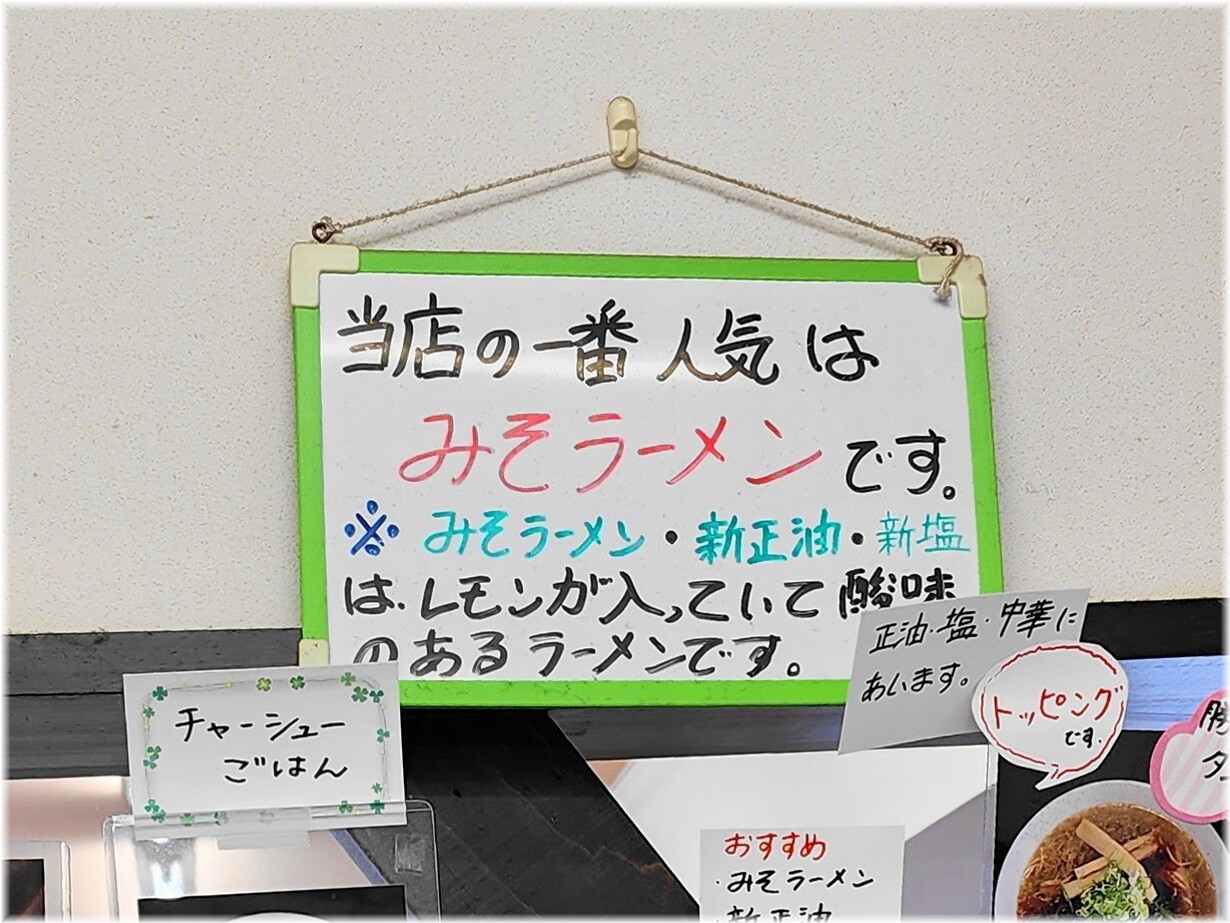 当店の一番人気は
みそラーメンです。
※みそラーメン・新正油・新塩
は、レモンが入っていて酸味
のあるラーメンです。
正油・塩・中華に
あいます。
トッピング
です。
チャーシュー
ごはん
おすすめ
・みそラーメン
・新正油